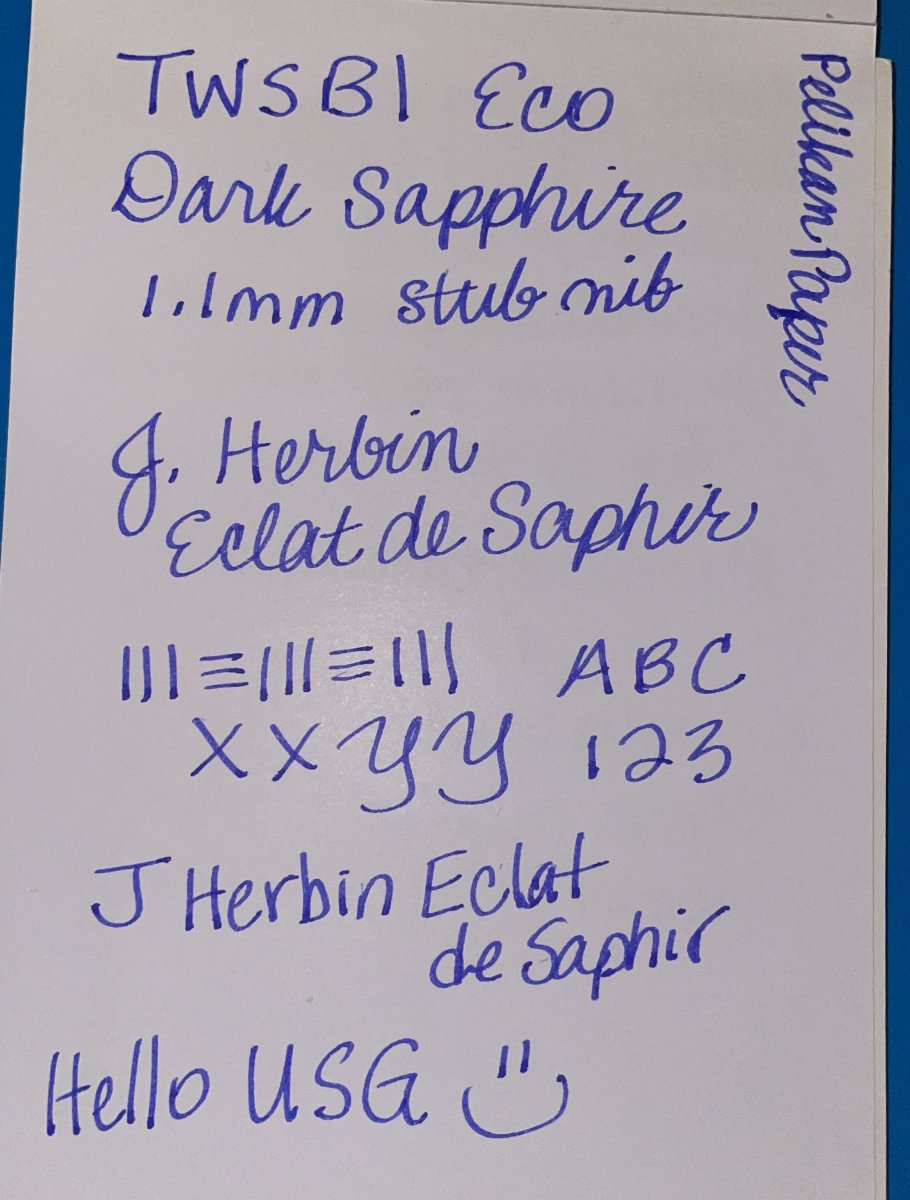 TWSBI Eco
Dark Sapphire
1.1mm stub nib
J. Herbin
Eclat de Saphir
|||≡|||≡||| ABC
XXYY 123
J Herbin Eclat
de Saphir
Hello USG
Pelikan Paper